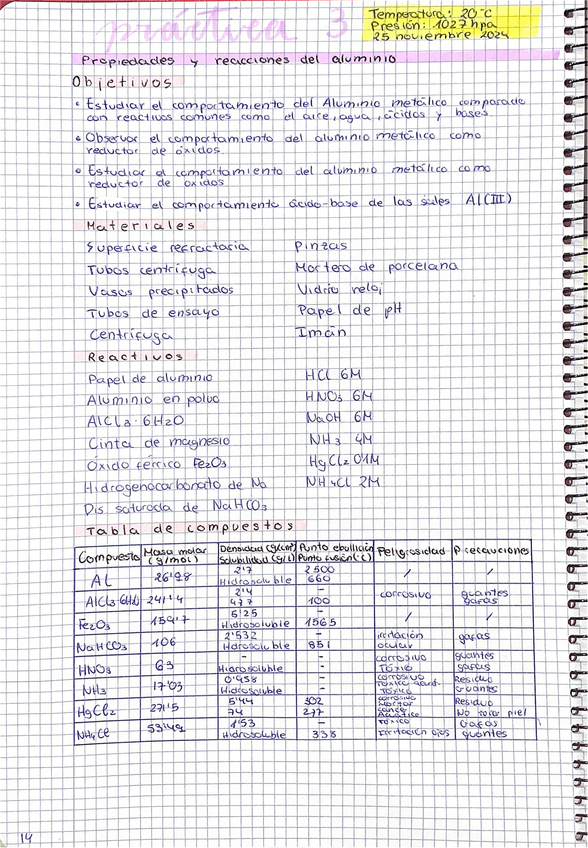 práctica 3
Temperatura: 20°C
Presión: 1027 hpa
25 noviembre 2024
Propiedades y reacciones del aluminio
Objetivos
• Estudiar el comportamiento del Aluminio metálico comparado
con reactivos comunes como el aire, agua, ácidos y bases.
• Observar el comportamiento del aluminio metálico como
reductor de óxidos
• Estudiar el comportamiento del aluminio metálico como
reductor de oxidos
• Estudiar el comportamiento ácido-base de las sales Al(III)
Materiales
Superficie refractaria Pinzas
Tubos centrífuga Mortero de porcelana
Vasos precipitados Vidrio reloj
Tubos de ensayo Papel de pH
Centrifuga Imán
Reactivos
Papel de aluminio HCl 6M
Aluminio en polvo HNO3 6M
AlCl3·6H2O NaOH 6M
Cinta de magnesio NH3 4M
Óxido férrico Fe2O3 HgCl2 0'1M
Hidrogenocarbonato de Na NH4Cl 2M
Dis saturada de NaHCO3
Tabla de compuestos
Compuesto Masa molar (g/mol) Densidad (g/cm³) Solubilidad (g/L) Punto ebullición Punto fusión (°C) Peligrosidad Precauciones
Al 26'98 2'7 Hidrosoluble 2500 660 / /
AlCl3·6H2O 241'4 2'4 477 - 100 corrosivo guantes gafas
Fe2O3 159'7 5'25 Hidrosoluble - 1565 / /
NaHCO3 106 2'532 Hidrosoluble - 851 irritación ocular gafas
HNO3 63 - Hidrosoluble - - corrosivo Tóxico guantes gafas
NH3 17'03 0'958 Hidrosoluble - - corrosivo Tóxico Residuo Guantes
HgCl2 271'5 5'44 74 302 277 corrosivo Residuo No tocar piel
NH4Cl 53'49 1'53 Hidrosoluble - 338 Tóxico irritación ojos Gafas guantes
14